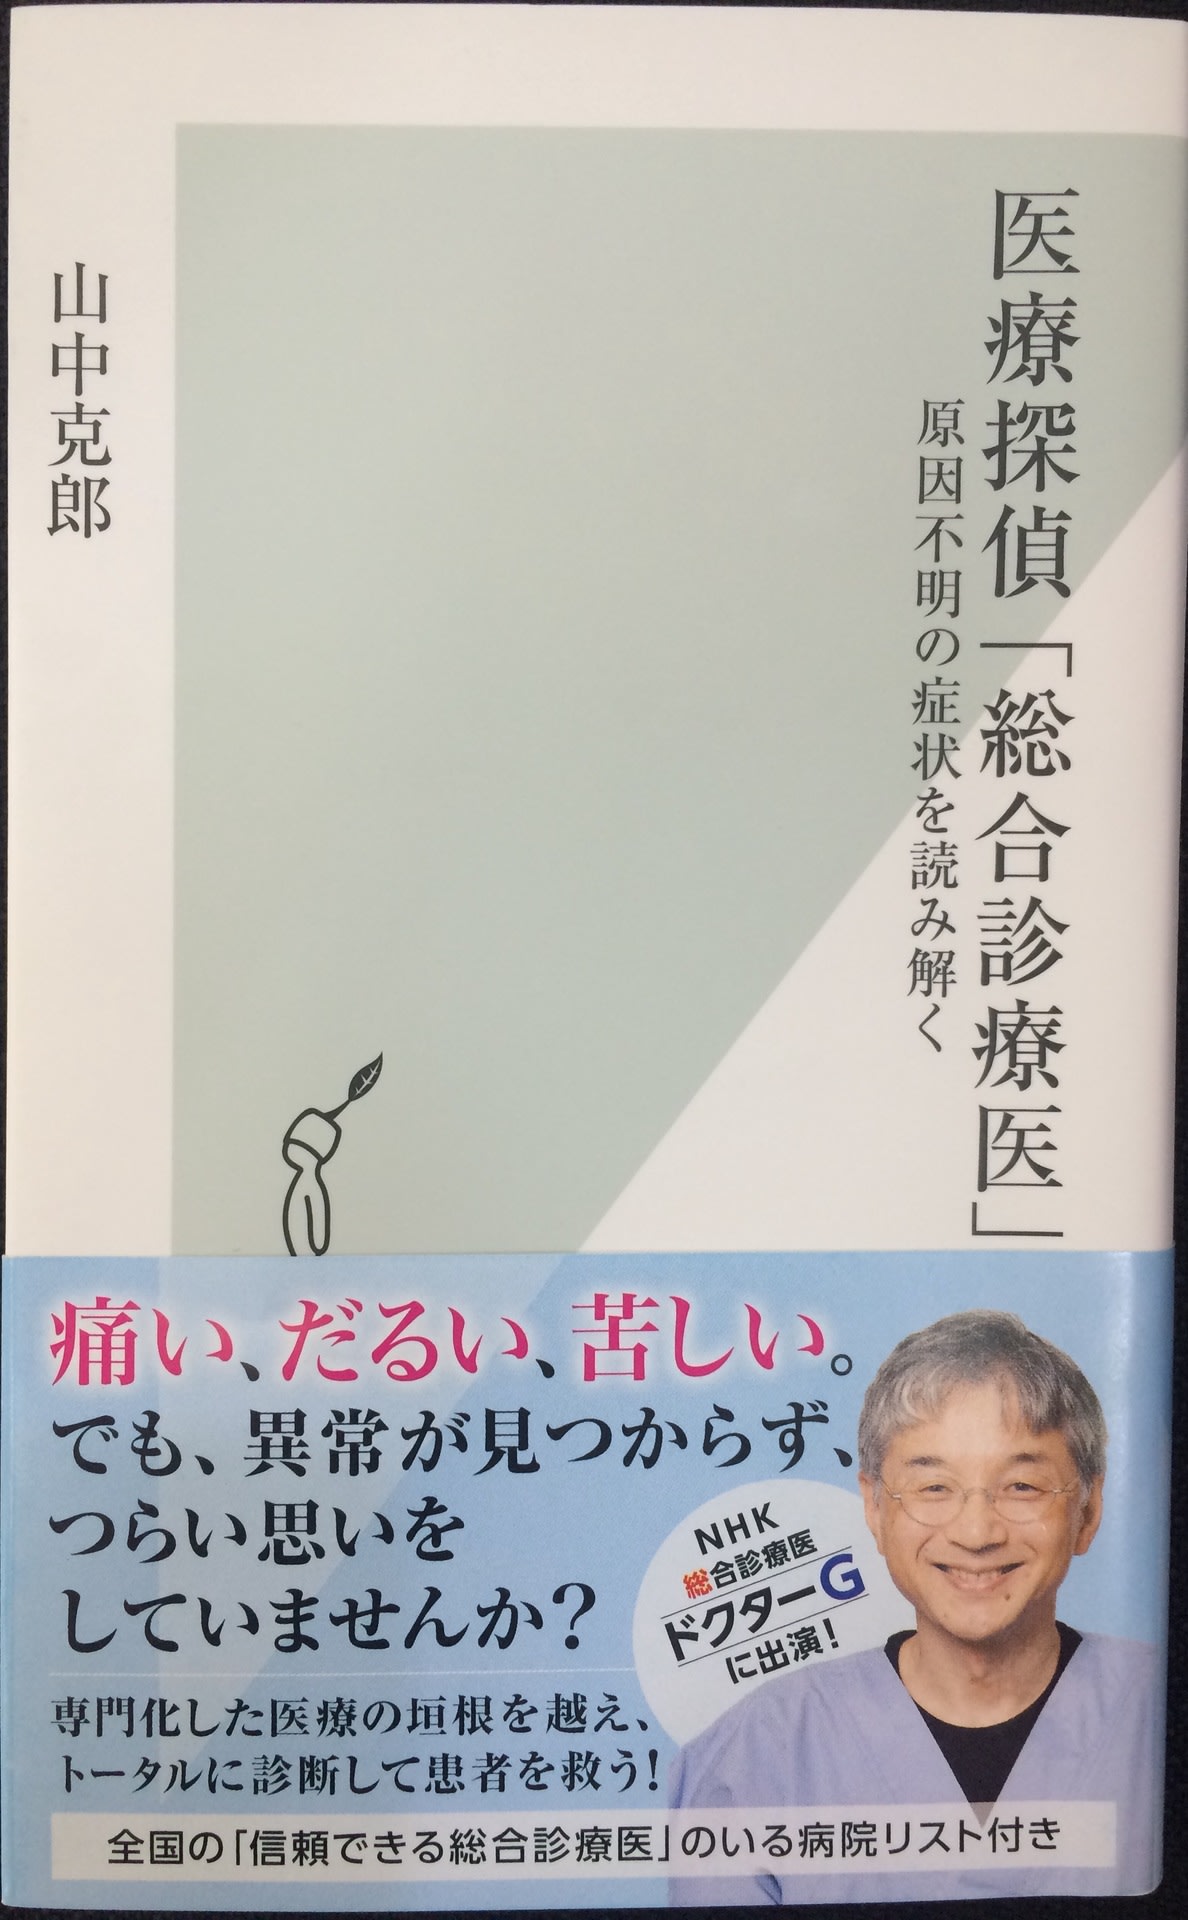 医療探偵「総合診療医」
原因不明の症状を読み解く
山中克郎
痛い、だるい、苦しい。
でも、異常が見つからず、
つらい思いを
していませんか？
NHK
総合診療医
ドクターG
に出演！
専門化した医療の垣根を越え、
トータルに診断して患者を救う！
全国の「信頼できる総合診療医」のいる病院リスト付き